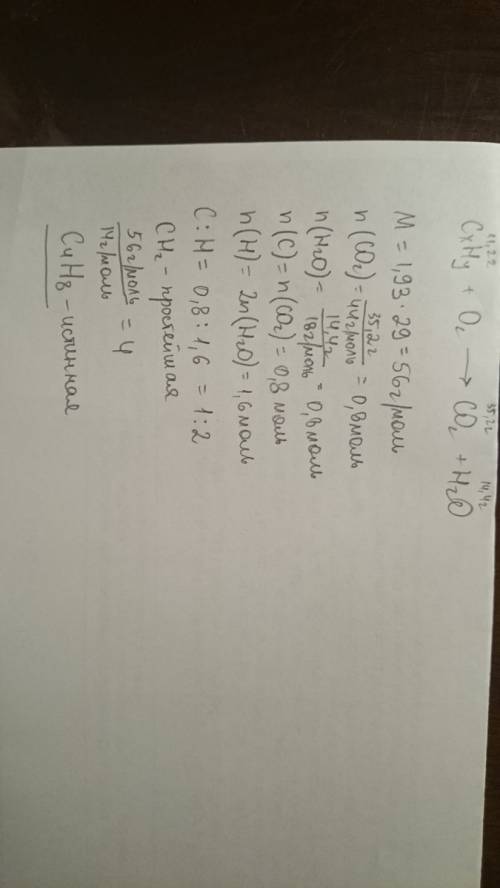 11,2г 35,2г 14,4г
CxHy + O₂ → CO₂ + H₂O
M = 1,93 · 29 = 56г/моль
n(CO₂) = 35,2г / 44г/моль = 0,8моль
n(H₂O) = 14,4г / 18г/моль = 0,8моль
n(C) = n(CO₂) = 0,8 моль
n(H) = 2n(H₂O) = 1,6моль
C : H = 0,8 : 1,6 = 1 : 2
CH₂ - простейшая
56г/моль / 14г/моль = 4
C₄H₈ - истинная